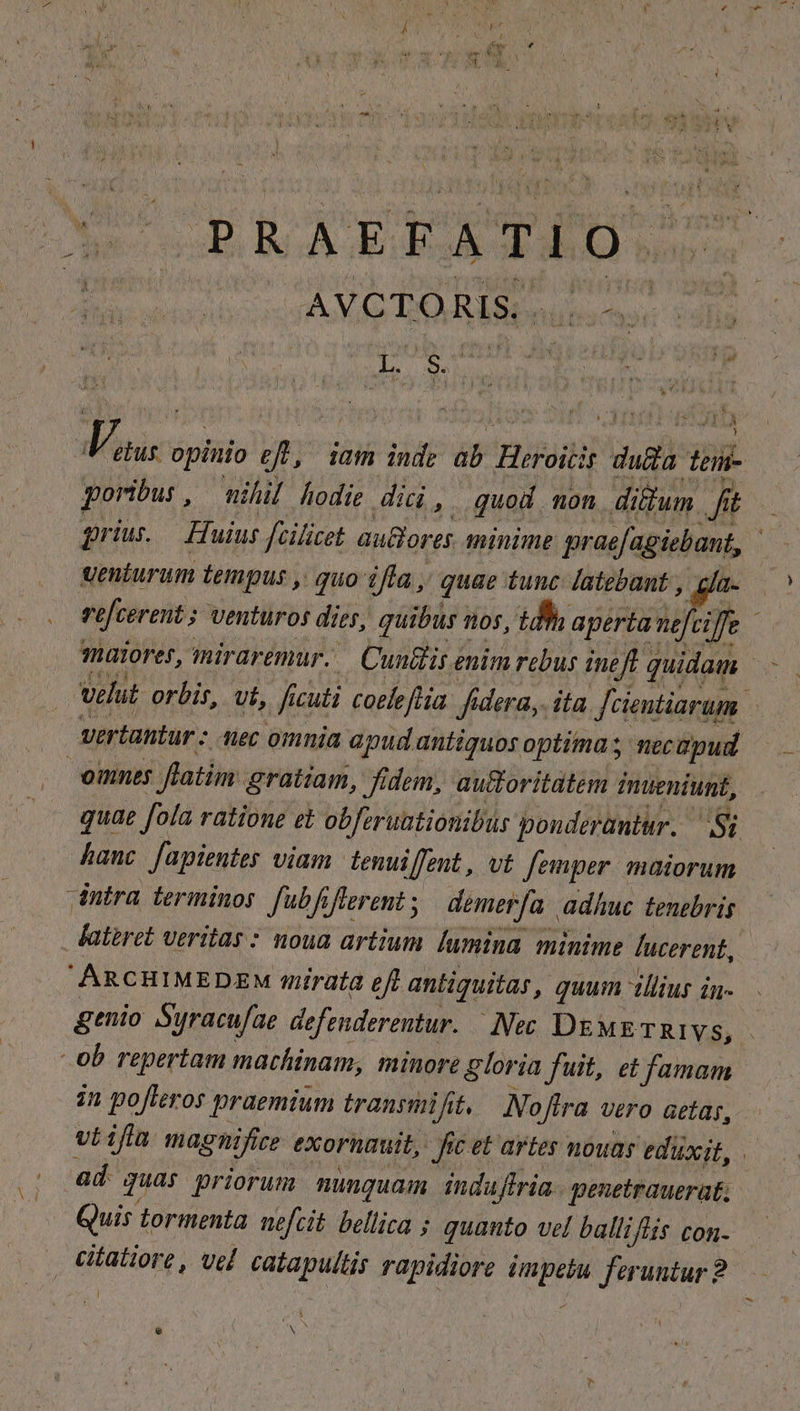 PRAEFATIO
AVCTORIS.
L. S.
Vetus opinio eſt, iam inde ab Heroicis ducta tem-
poribus, nihil hodie dici, quod non dictum ſit
prius. Huius ſcilicet auctores minime praeſagiebant,
venturum tempus, quo iſta, quae tunc latebant, gla-
reſcerent; venturos dies, quibus nos, tam aperta neſciſſe
maiores, miraremur. Cunctis enim rebus ineſt quidam
velut orbis, vt, ſicuti coeleſtia ſidera, ita ſcientiarum
vertantur: nec omnia apud antiquos optima; nec apud
omnes ſtatim gratiam, fidem, auctoritatem inueniunt,
quae ſola ratione et obſeruationibus ponderantur. Si
hanc ſapientes viam tenuiſſent, vt ſemper maiorum
intra terminos ſubſiſterent; demerſa adhuc tenebris
lateret veritas: noua artium lumina minime lucerent,
ARCHIMEDEM mirata eſt antiquitas, quum illius in-
genio Syracuſae defenderentur. Nec DEMETRIVS,
ob repertam machinam, minore gloria fuit, et famam
in poſteros praemium transmiſit. Noſtra vero aetas,
vt iſta magnifice exornauit, ſic et artes nouas eduxit,
ad quas priorum nunquam induſtria penetrauerat.
Quis tormenta neſcit bellica; quanto vel balliſtis con-
citatiore, vel catapultis rapidiore impetu feruntur?